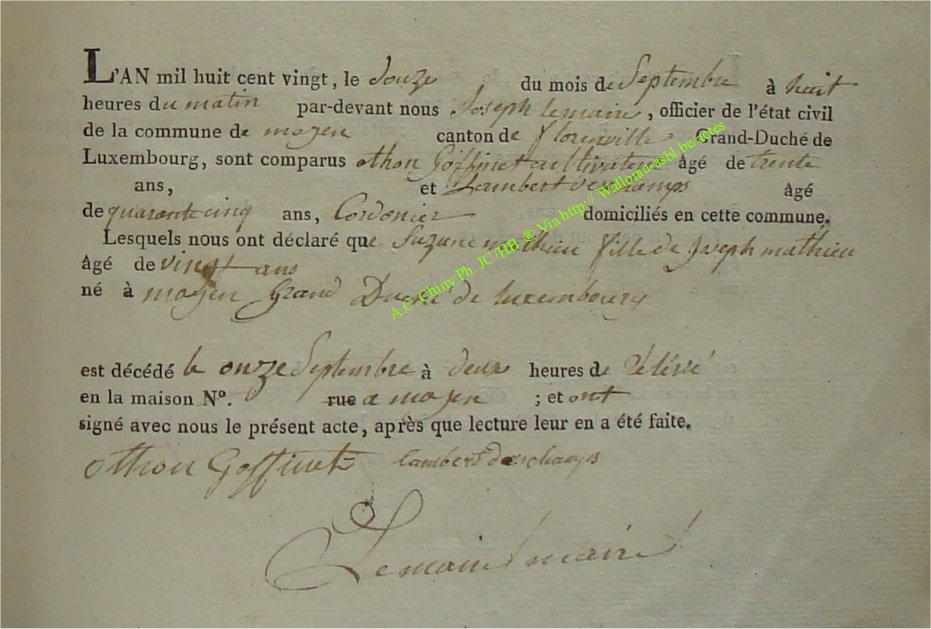 L'AN mil huit cent vingt, le douze du mois de Septembre à huit
heures du matin par-devant nous Joseph lemaire, officier de l'état civil
de la commune de moyen canton de florenville Grand-Duché de
Luxembourg, sont comparus othon Goffinet cultivateur âgé de trente
ans, et Lambert deschamps âgé
de quarante cinq ans, Cordonier domiciliés en cette commune.
Lesquels nous ont déclaré que Suzane mathieu fille de Joseph mathieu
âgé de vingt ans
né à moyen Grand Duché de luxembourg
est décédé le onze Septembre à deux heures de
en la maison N°. rue a moyen ; et ont
signé avec nous le présent acte, après que lecture leur en a été faite.
othon Goffinet lambert deschamps
Lemaire maire
A.C. Chiny Ph. JC/HB @ Via http://Wallonia-asbl.be/actes